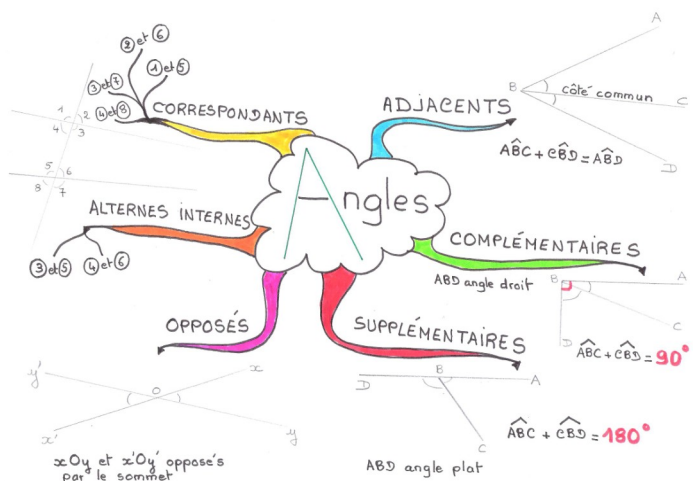 Angles
CORRESPONDANTS
② et ⑥
① et ⑤
③ et ⑦
④ et ⑧
1 2
4 3
5 6
8 7
ALTERNES INTERNES
③ et ⑤
④ et ⑥
OPPOSÉS
y'
x
O
x'
y
xOy et x'Oy' opposés
par le sommet
ADJACENTS
A
B
côté commun
C
D
ABC + CBD = ABD
COMPLÉMENTAIRES
ABD angle droit
B
A
C
D
ABC + CBD = 90°
SUPPLÉMENTAIRES
D
B
A
C
ABC + CBD = 180°
ABD angle plat